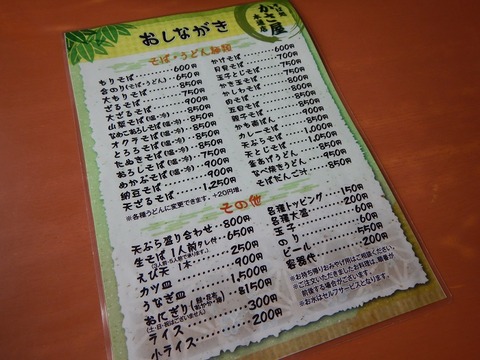 おしながき
かさ屋
本通店
そば・うどん麺類
もりそば……600円
合のり(そば・うどん)…650円
大もりそば……750円
ざるそば……750円
大ざるそば……850円
山菜そば(温・冷)……850円
なめこおろしそば(温・冷)…850円
オクラそば(温・冷)…850円
とろろそば(温・冷)…850円
たぬきそば(温・冷)…750円
おろしそば(温・冷)…900円
めかぶそば(温・冷)…900円
納豆そば……
天ざるそば……1,250円
※各種うどんに変更できます。+20円増。
かけそば……600円
月見そば……700円
玉子とじそば……
かき玉そば……
かしわそば……
肉そば……850円
五目そば……
親子そば……
かも南ばん……850円
カレーそば……
天ぷらそば……1,000円
天とじそば……1,050円
鍋あげうどん……950円
なべ焼きうどん……950円
そばだんご汁……850円
その他
天ぷら盛り合わせ…800円
生そば1人前タレ付…650円
えび天 1本……250円
カツ皿……900円
うなぎ皿……1,500円
おにぎり……各150円
ライス……300円
小ライス……200円
各種トッピング……150円
各種大盛……200円
玉子……
のり……
ビール……
容器代……
※お持ち帰りおみやげ用はご相談ください。
※お水はセルフサービスとなります。